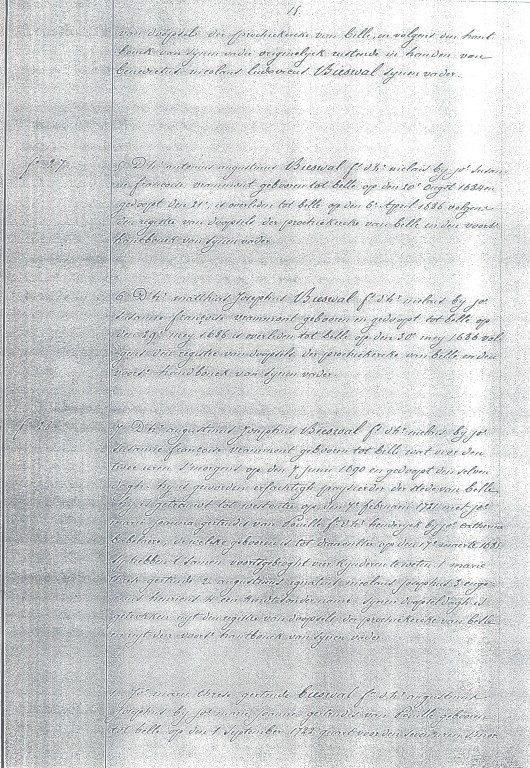 18.
van doopsele der prochiekercke van belle, en volgens den hant
bouck van synen vader originelyck rustende in handen van
benedictus nicolaus ludovicus Bieswal synen vader.
fo 27
5. Dhr antonius augustinus Bieswal fs dhr nielais by jor susan
ne francoise vranmont gebooren tot belle op den 20e Ougst 1684 en
gedoopt den 21e, is overleden tot belle op den 6e April 1686 volgens
den registre van doopsele der prochiekercke van belle en den voors
hantbouck van synen vader
6. Dhr matthias Josephus Bieswal fs dhr nielais by jor
susanne francoise vranmont gebooren en gedoopt tot belle op
den 29e mey 1686 is overleden tot belle op den 30e mey 1686 vol
gens den registre van doopsele der prochiekercke van belle en den
voors handbouck van synen vader.
7. Dhr augustinus Josephus Bieswal fs dhr nielais by jor
susanne francoise vranmont gebooren tot belle wat voor den
twee uren s'morgens op den 7 Junii 1690 en gedoopt den selven
dagh. hy is geworden erfachtigh greffier der stede van belle
hy is getrauwt tot westouter op den 7e februari 1721 met jor
marie joanna gertrudis van Pouille fa dhr henderyck by jor catharina
de welcke gebooren is tot dranouter op den 17e maerte 1695
sy hebben t'samen voortsgebraght vier kinderen te weten 1. marie
therese gertrude 2. augustinus ignatius nicolaus Josephus 3. euge
nius henricus 4. een kindt sonder name. synen doopsel dagh is
getrocken uyt den registre van doopsele der prochiekercke van belle
en uyt den voors hantbouck van synen vader
1. Jor marie therese gertrude Bieswal fa dhr augustinus
Josephus by jor marie joanna gertrudis van Pouille gebooren
tot belle op den 1 september 1722 quart voor den seven uren s'mor